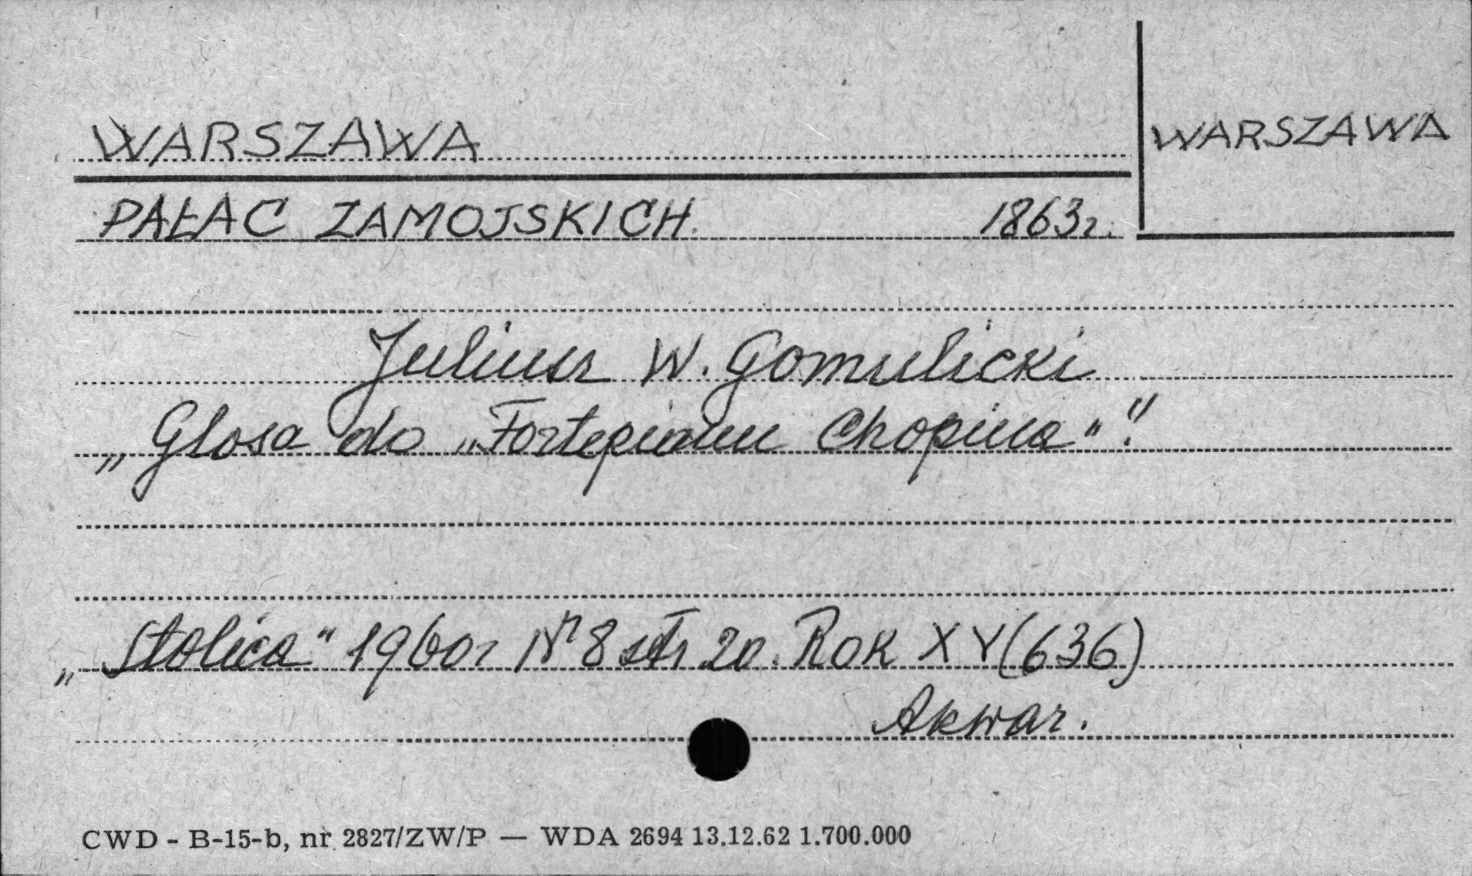 WARSZAWA
WARSZAWA
PAŁAC ZAMOJSKICH 1863r.
Juliusz W. Gomulicki
„Glosa do „Fortepianu Chopina“."
„Stolica“ 1960r Nr 8 str 20. Rok XV (636)
Akwar.
CWD - B-15-b, nr 2827/ZW/P — WDA 2694 13.12.62 1.700.000